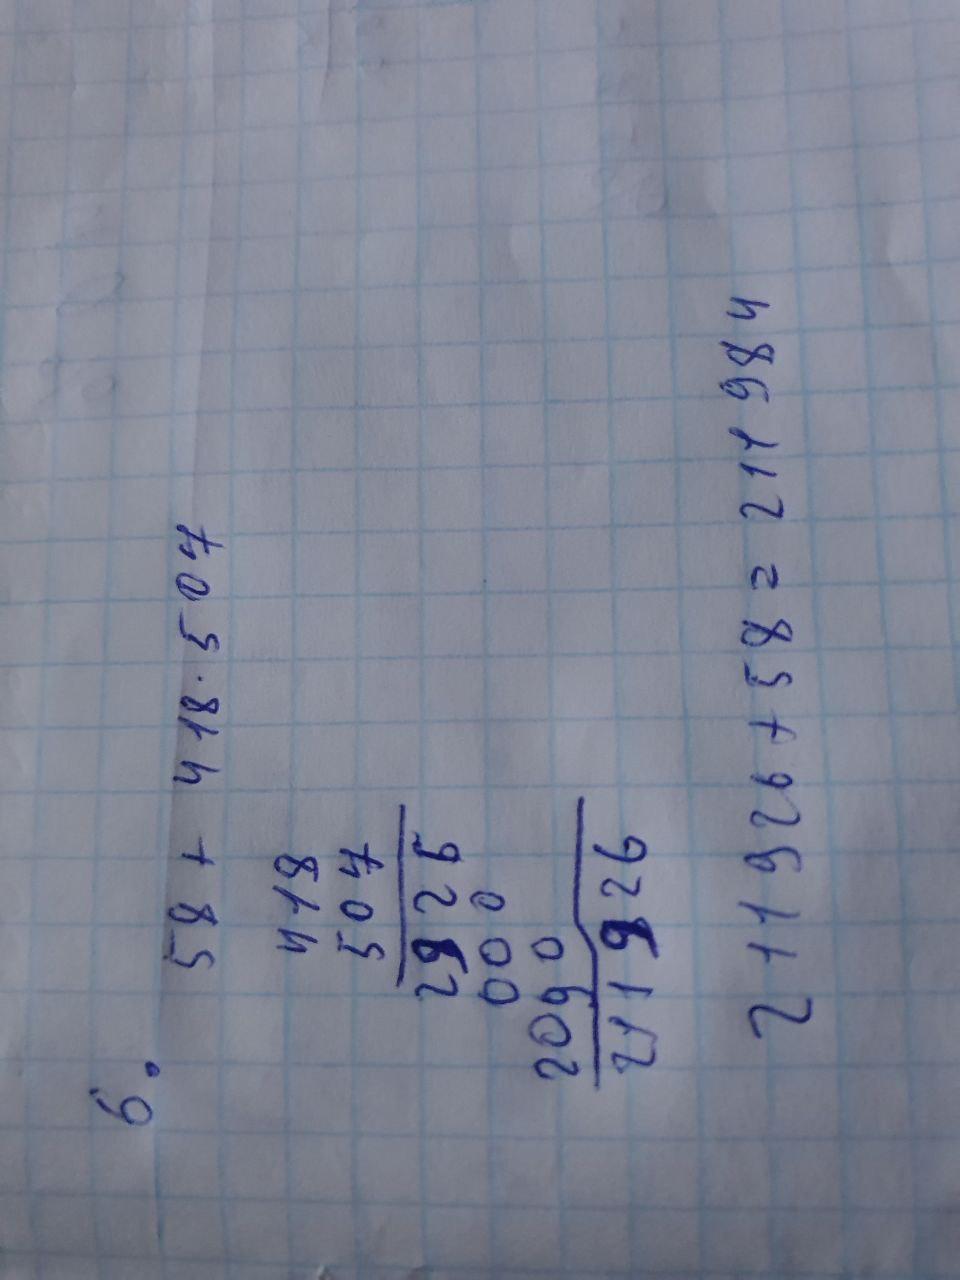 6.
58 + 418 · 507
418
507
2926
000
2090
211926
211926 + 58 = 211984